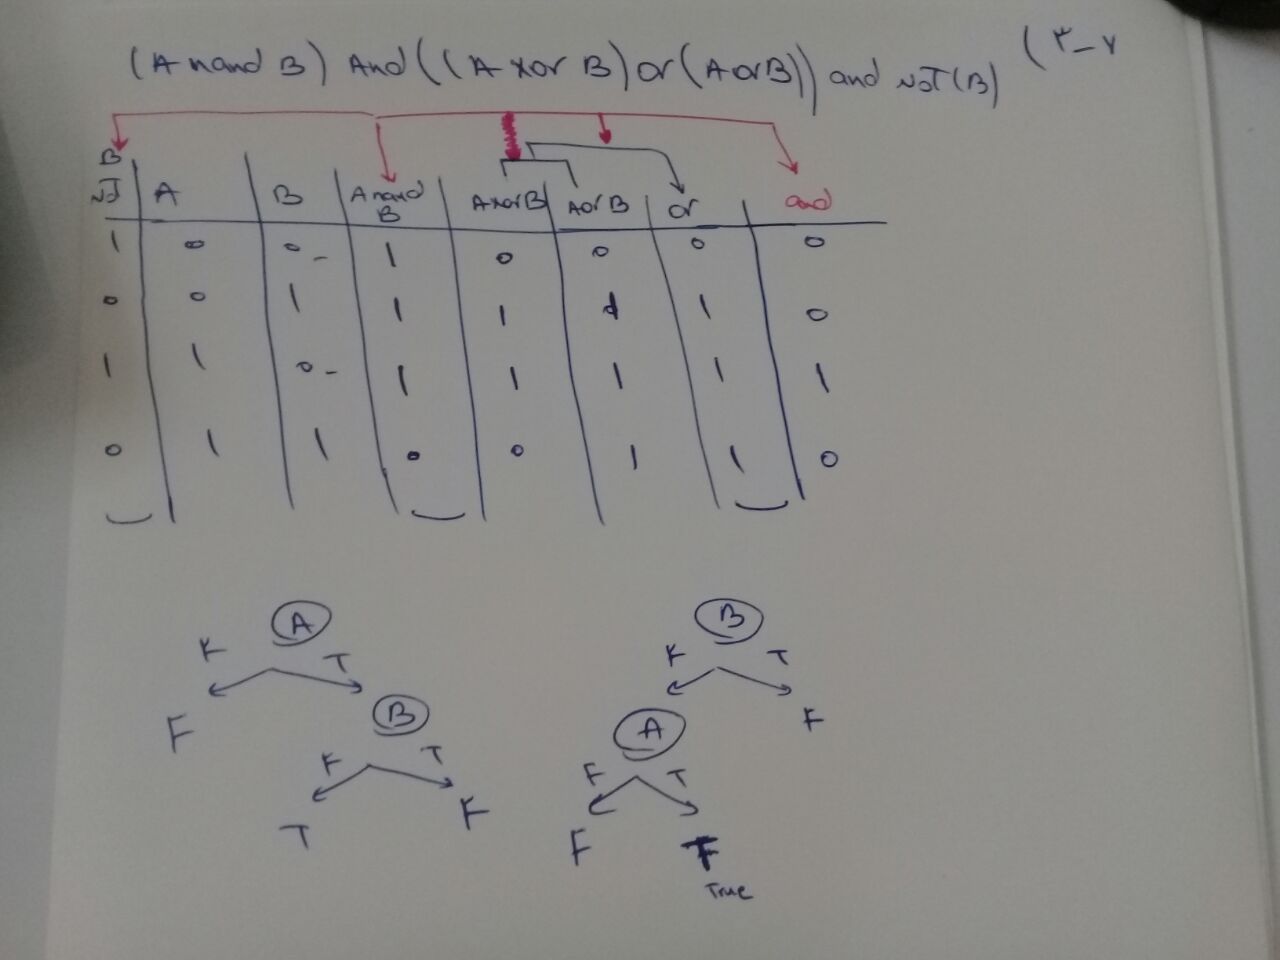 (A nand B) And ((A xor B) or (A or B)) and NOT (B)
(۳-۷
NOT B A B A nand B A xor B A or B or and
1 0 0 1 0 0 0 0
0 0 1 1 1 1 1 0
1 1 0 1 1 1 1 1
0 1 1 0 0 1 1 0
A
F T
F B
F T
T F
B
F T
A F
F T
F
True